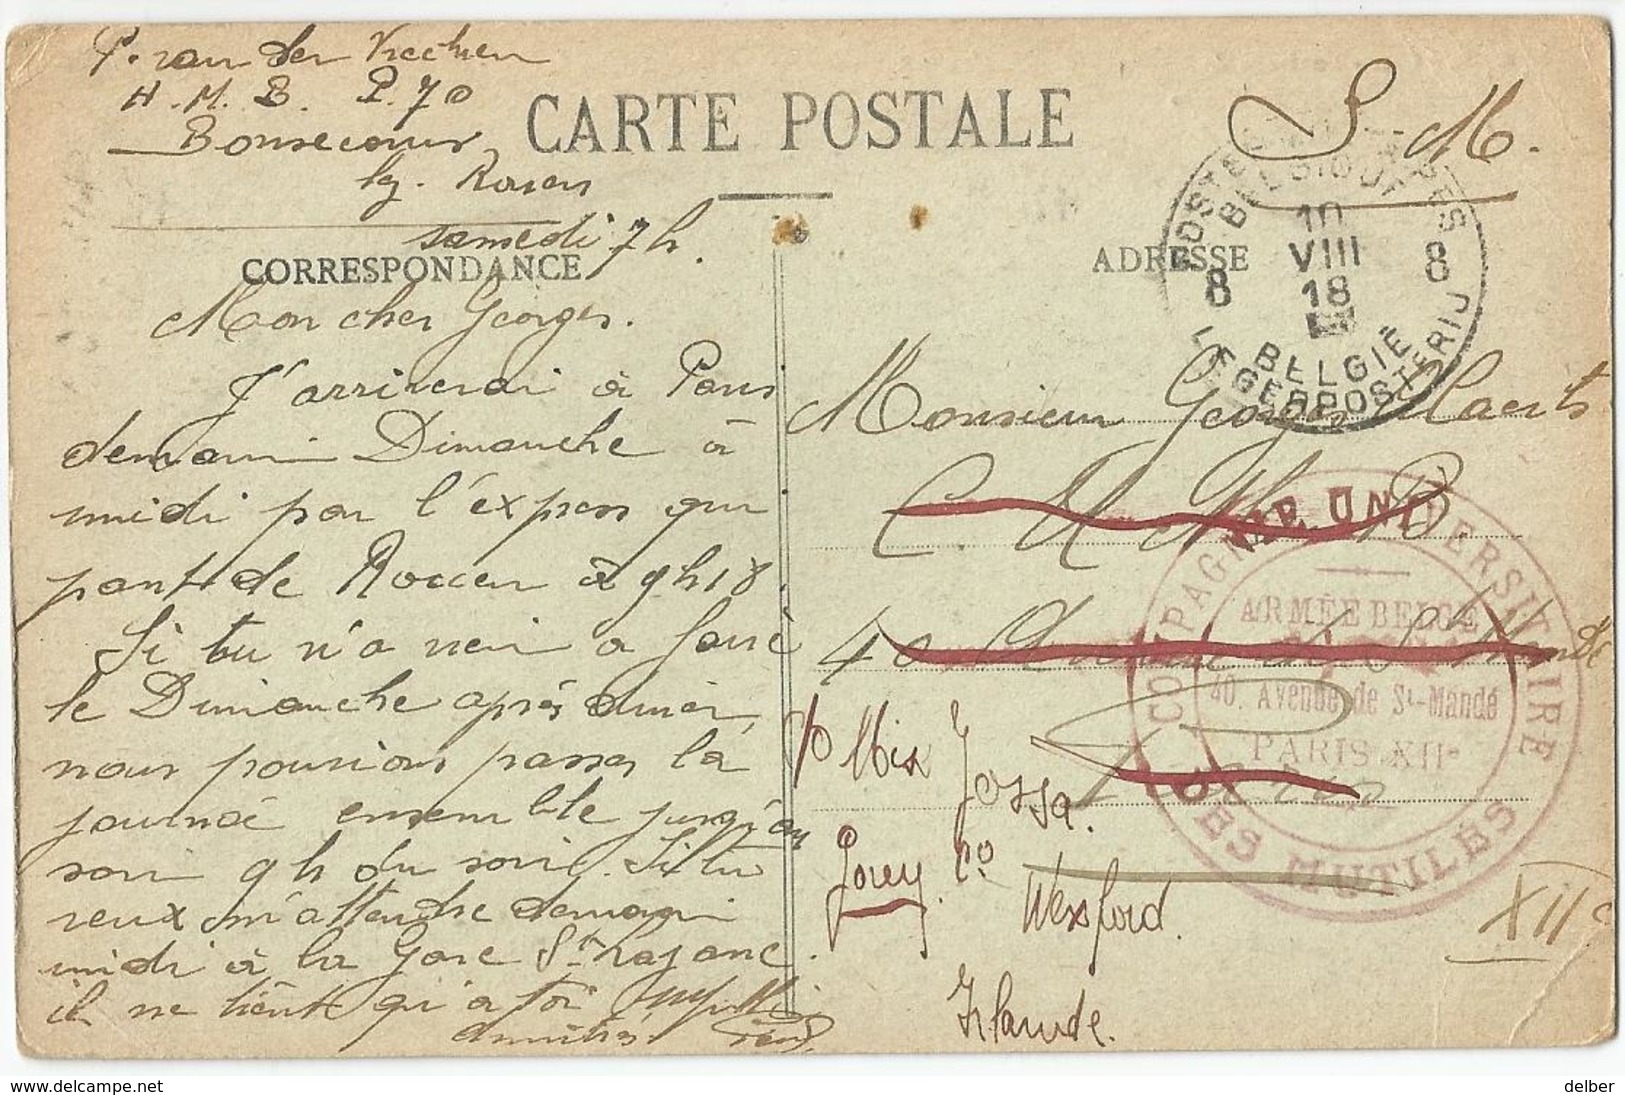 P. van der
H.M.B. P.70
Bonsecours
lez. Rouen
samedi 7h.
CARTE POSTALE
S.M.
CORRESPONDANCE
ADRESSE
POSTES MILITAIRES
BELGIQUE
10
VIII
18
8 8
BELGIË
LEGERPOSTERIJ
Mon cher Georges.
J'arriverai à Paris
demain Dimanche à
midi par l'express qui
part de Rouen à 9h18.
Si tu n'a rien a faire
le Dimanche après diner,
nous pourions passer la
journé ensemble jusqu'au
soir 9h du soir. Si tu
veux m'attendre demain
midi à la Gare St Lazare.
il ne tient qu'a toi
amitiés
Monsieur Georges Maerts
C. U. M. B.
40 Avenue de St Mandé
Paris
XIIe
COMPAGNIE UNIVERSITAIRE
DES MUTILÉS
ARMÉE BELGE
40, Avenue de St-Mandé
PARIS-XIIe
c/o Miss Jossa.
Gorey. Co Wexford.
Irlande.
delber